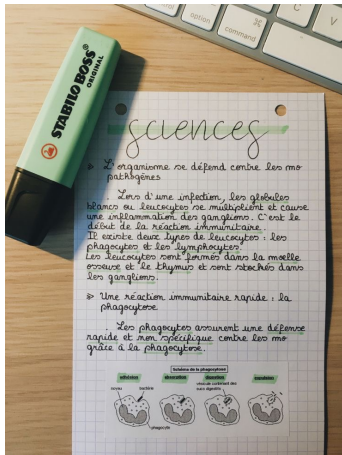 control
option
command
⌘
C
V
STABILO BOSS
ORIGINAL
sciences
» L'organisme se défend contre les mo
pathogènes
. Lors d'une infection, les globules
blancs ou leucocytes se multiplient et cause
une inflammation des ganglions. C'est le
début de la réaction immunitaire.
Il existe deux types de leucocytes : les
phagocytes et les lymphocytes.
Les leucocytes sont formés dans la moelle
osseuse et le thymus et sont stockés dans
les ganglions.
» Une réaction immunitaire rapide : la
phagocytose
. Les phagocytes assurent une défense
rapide et non spécifique contre les mo
grâce à la phagocytose.
Schéma de la phagocytose
adhésion absorption digestion excrétion
noyau bactérie vésicule contenant des
sucs digestifs
phagocyte